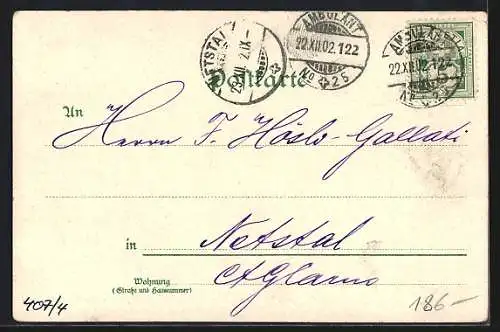 AMBULANT
22.XII.02.122
No 25
AMBULANT
22.XII.02.12
NETSTAL
Postkarte
An
Herrn F.
in Netstal
Ct Glarus
Wohnung
(Straße und Hausnummer)
407/4
186-